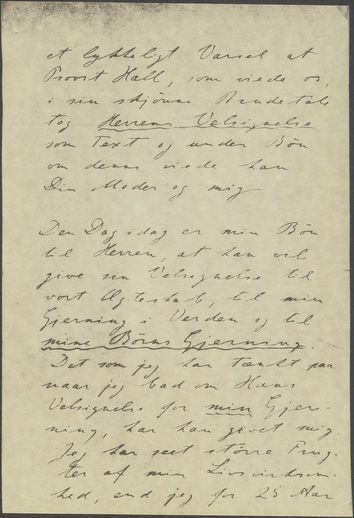 et lykkeligt Varsel at
Provst Hall, som viede os,
i sin skjönne Brudetale
tog Herrens Velsignelse
som Text og under Bön
om denne viede han
Din Moder og mig
Den Dag idag er min Bön
til Herren, at han vil
give sin Velsignelse til
vort Ægteskab, til min
Gjerning i Verden og til
mine Börns Gjerning.
Det som jeg har tænkt paa
naar jeg bad om Hans
Velsignelse for min Gjer-
ning, har han givet mig.
Jeg har seet större Frug-
ter af min Livsvirksom-
hed, end jeg for 25 Aar